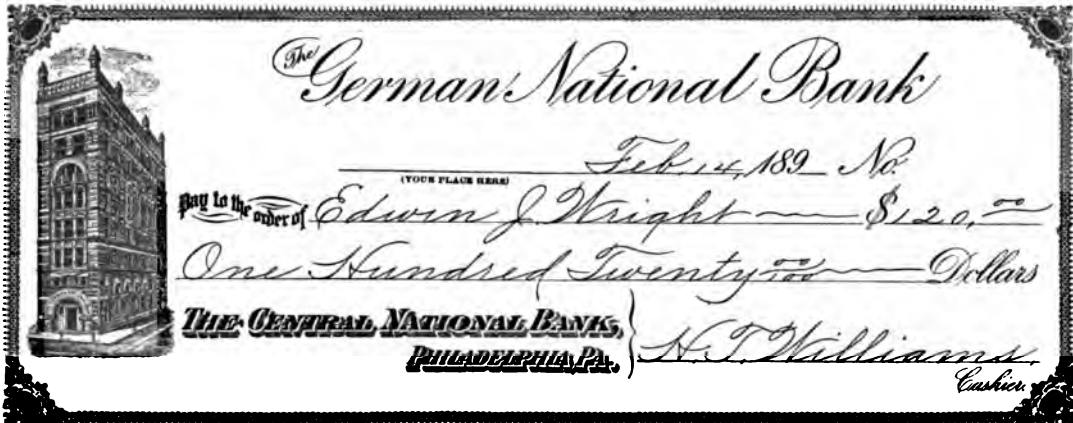 The German National Bank
Feb. 14, 189 No.
(YOUR PLACE HERE)
Pay to the order of Edwin J. Wright $120.00
One Hundred Twenty 00/100 Dollars
THE CENTRAL NATIONAL BANK,
PHILADELPHIA, PA.
H. T. Williams.
Cashier.